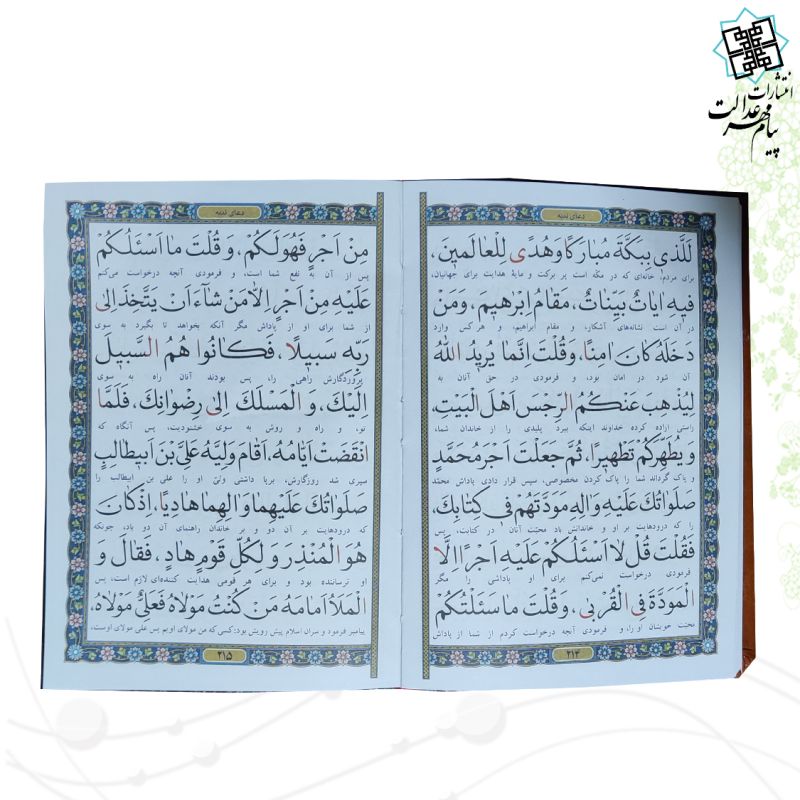 انتشارات
پیام مهر عدالت
دعای ندبه
لَلَّذی بِبَکَّةَ مُبارَکًا وَ هُدًی لِلْعالَمینَ،
برای مردم) خانه‌ای که در مکّه است پر برکت و مایهٔ هدایت برای جهانیان،
فیهِ ایاتٌ بَیِّناتٌ، مَقامُ اِبْرهیمَ، وَمَنْ
در آن است نشانه‌های آشکار، و مقام ابراهیم، و هر کس وارد
دَخَلَهُ کانَ امِنًا، وَقُلْتَ اِنَّما یُریدُ اللهُ
آن شود در امان بود، و فرمودی در حق آنان به
لِیُذْهِبَ عَنْکُمُ الرِّجْسَ اَهْلَ الْبَیْتِ،
راستی اراده کرده خداوند اینکه ببرد پلیدی را از خاندان شما،
وَ یُطَهِّرَکُمْ تَطْهیرًا، ثُمَّ جَعَلْتَ اَجْرَ مُحَمَّدٍ
و پاک گرداند شما را پاک کردن مخصوصی، سپس قرار دادی پاداش محمّد
صَلَواتُکَ عَلَیْهِ وَالِهِ مَوَدَّتَهُمْ فی کِتابِکَ،
را که درودهایت بر او و خاندانش باد محبّت آنان در کتابت، پس
فَقُلْتَ قُلْ لا اَسْئَلُکُمْ عَلَیْهِ اَجْرًا اِلَّا
فرمودی درخواست نمی‌کنم برای او پاداشی را مگر
الْمَوَدَّةَ فِی الْقُرْبی، وَقُلْتَ ما سَئَلْتُکُمْ
محبّت خویشان او را، و فرمودی آنچه درخواست کردم از شما از پاداش
۲۱۴
دعای ندبه
مِنْ اَجْرٍ فَهُوَ لَکُمْ، وَ قُلْتَ ما اَسْئَلُکُمْ
پس از آن به نفع شما است، و فرمودی آنچه درخواست می‌کنم
عَلَیْهِ مِنْ اَجْرٍ اِلَّا مَنْ شآءَ اَنْ یَتَّخِذَ اِلی
از شما برای او از پاداش مگر آنکه بخواهد تا بگیرد به سوی
رَبِّهِ سَبیلًا، فَکانُوا هُمُ السَّبیلَ
پروردگارش راهی را، پس بودند آنان راه به سوی
اِلَیْکَ، وَ الْمَسْلَکَ اِلی رِضْوانِکَ، فَلَمَّا
تو، و راه و روش به سوی خشنودیت، پس آنگاه که
انْقَضَتْ اَیّامُهُ، اَقامَ وَلِیَّهُ عَلِیَّ بْنَ اَبیطالِبٍ
سپری شد روزگارش، برپا داشتی ولیّ او را علی بن ابیطالب را
صَلَواتُکَ عَلَیْهِما وَ الِهِما هادِیًا، اِذْ کانَ
که درودهایت بر آن دو و بر خاندان راهنمای آن دو باد، چونکه
هُوَ الْمُنْذِرَ وَ لِکُلِّ قَوْمٍ هادٍ، فَقالَ وَ
او ترساننده بود و برای هر قومی هدایت کننده‌ای لازم است، پس
الْمَلَاُ اَمامَهُ مَنْ کُنْتُ مَوْلاهُ فَعَلِیٌّ مَوْلاهُ،
پیامبر فرمود و سران اسلام پیش رویش بود: کسی که من مولای اویم پس علی مولای اوست،
۲۱۵